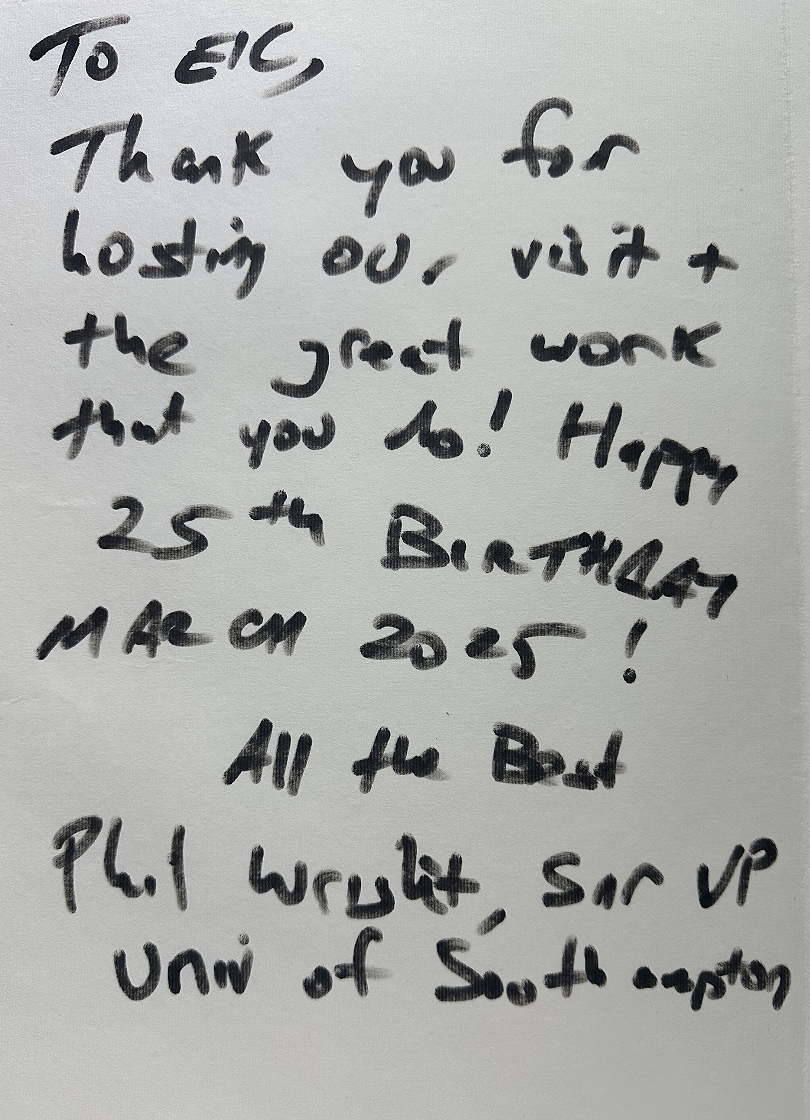 To EIC,
Thank you for
hosting our visit +
the great work
that you do! Happy
25th BIRTHDAY
MARCH 2025!
All the Best
Phil Wright, Snr VP
Univ of Southampton